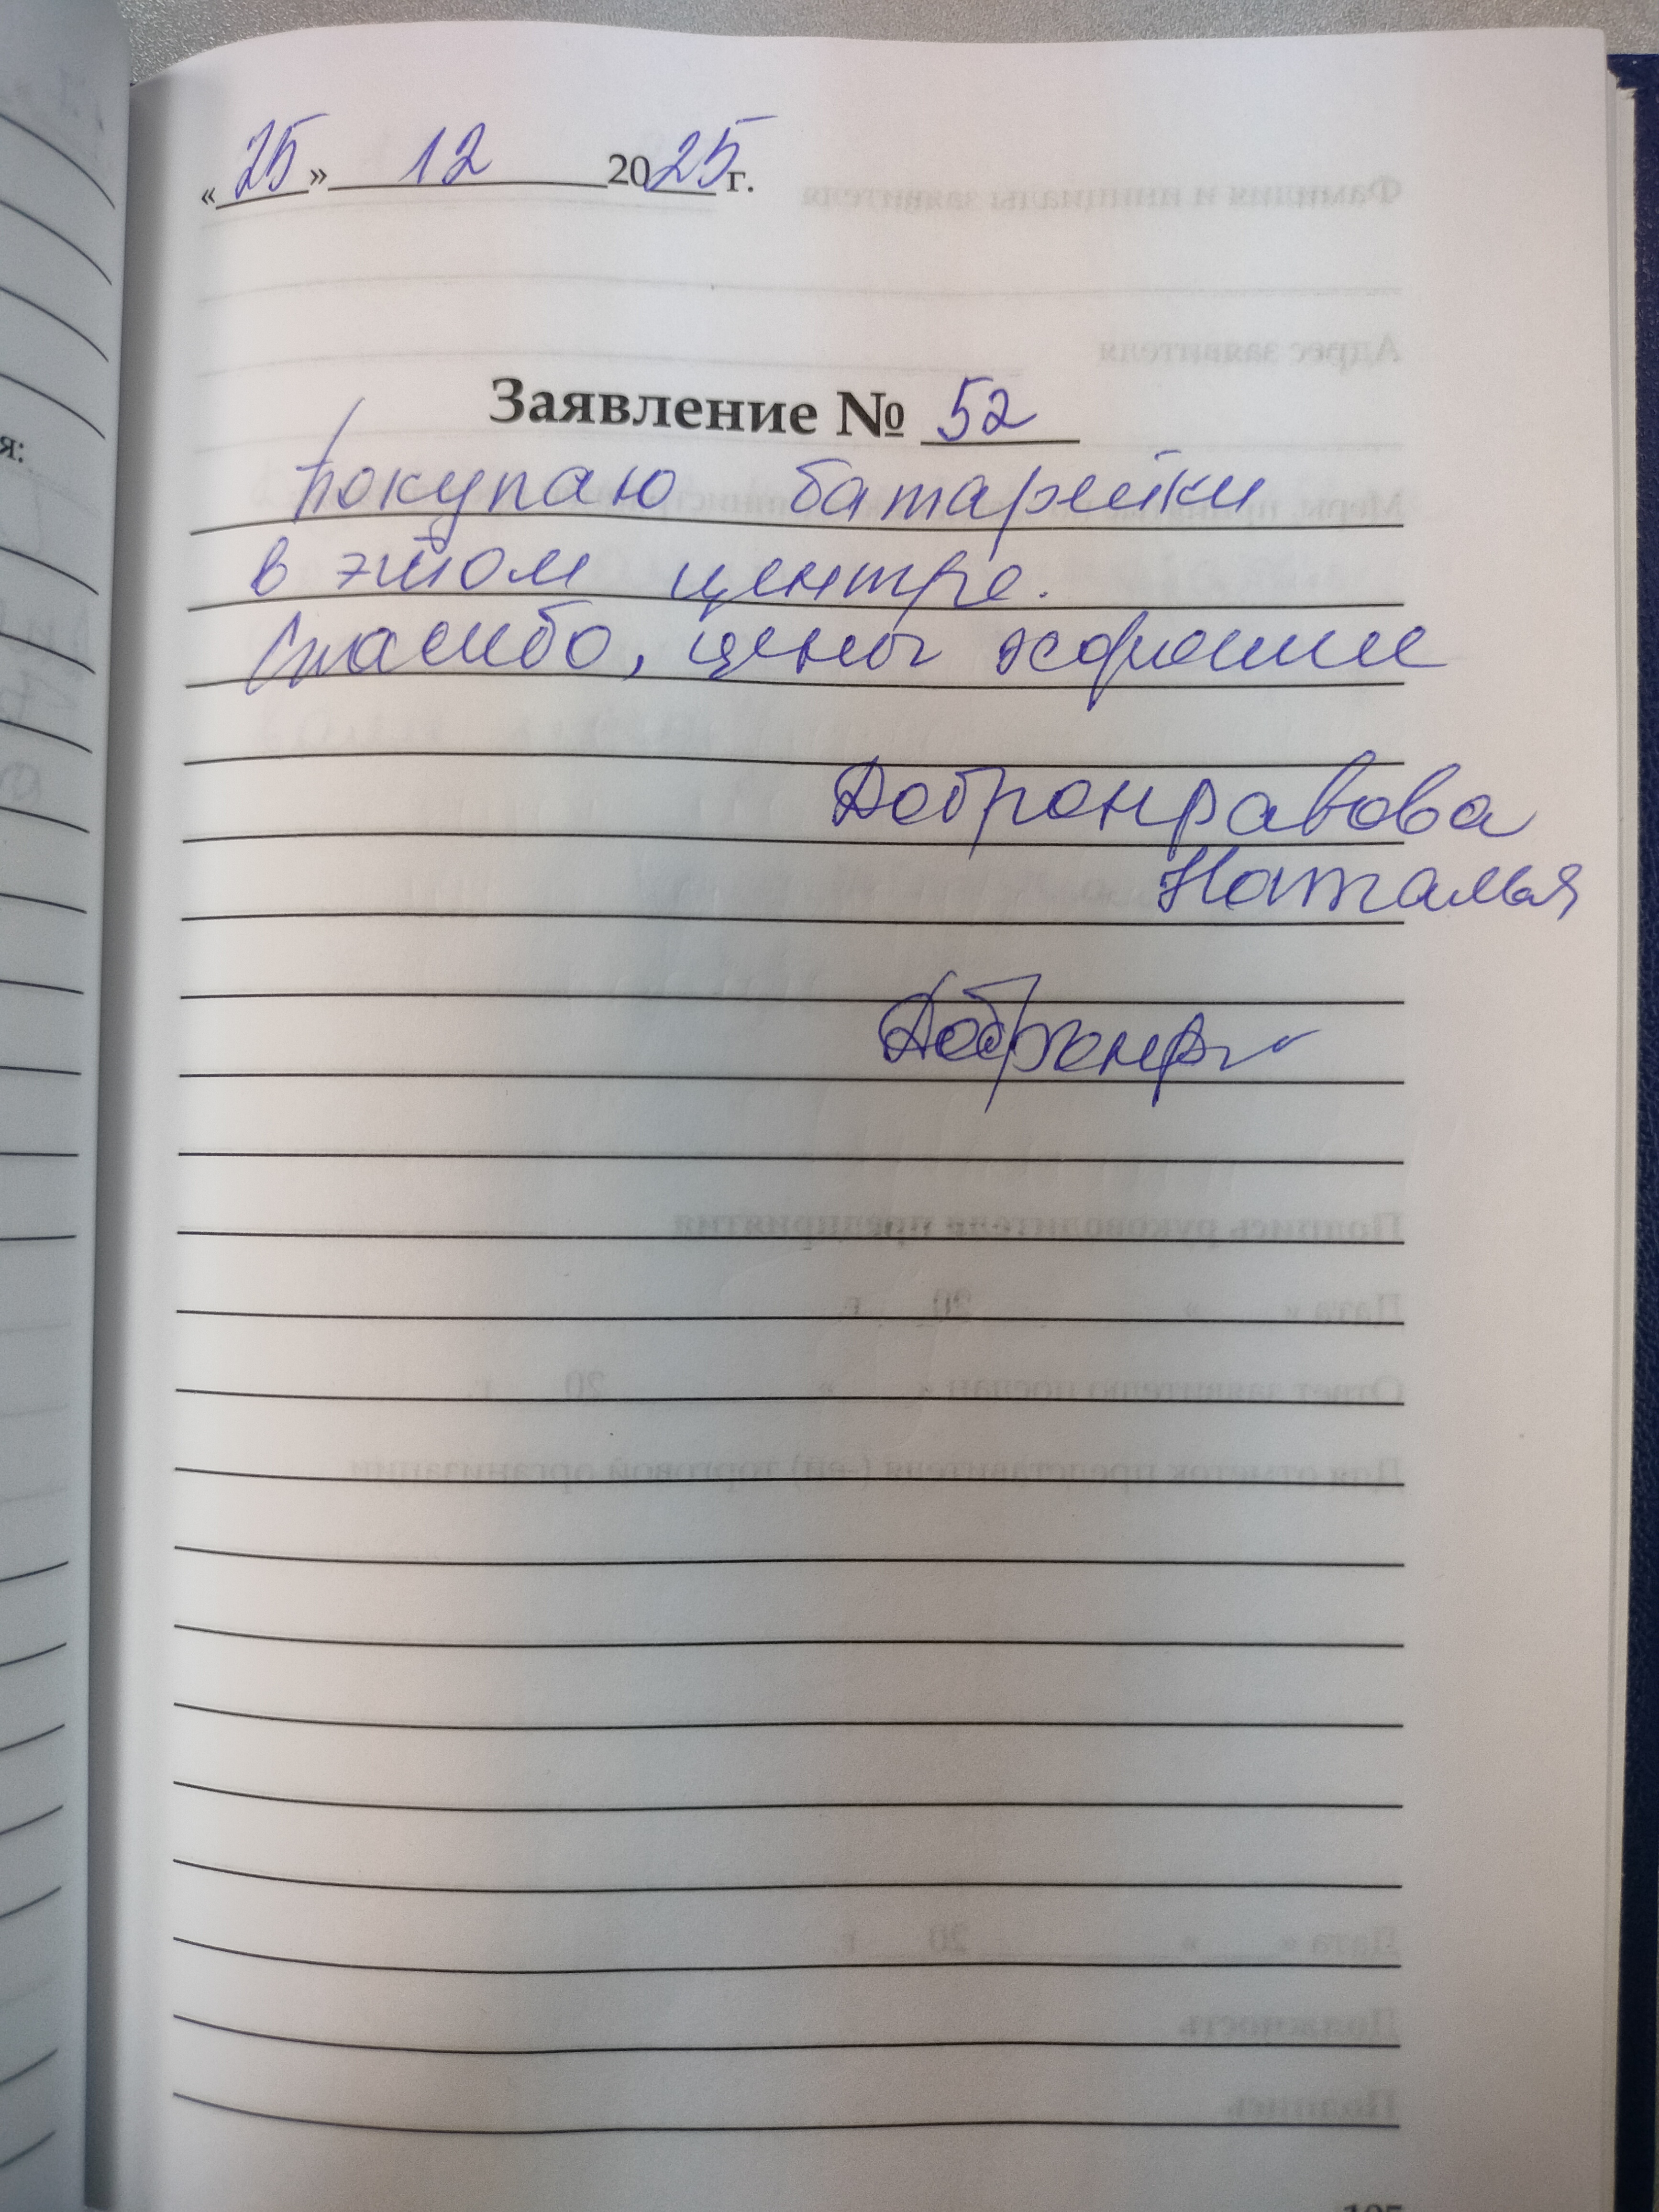 «25» 12 2025 г.
Заявление № 52
Покупаю батарейки
в этом центре.
Спасибо, цены хорошие
Добронравова
Наталья
Добронр